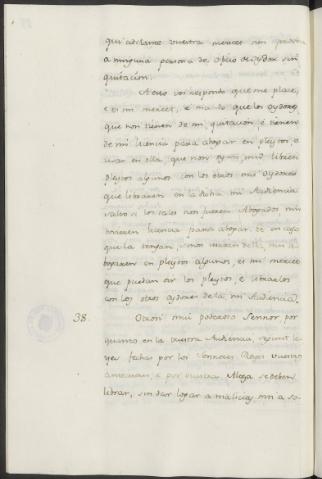 qui adelante vuestra merced non
a ninguna persona de oficio de oydor sin
quitacion.
A esto vos respondo que me place,
é es mi merced, é mando que los oydores
que non tienen de mi quitacion, é tienen
de mi licencia para abogar en pleytos, é
usar en ella, que non oyan, nin libren
pleytos algunos con los otros mis oydores
que libraren en la dicha mi Audiencia
salvo si los tales non fueren Abogados nin
tovieren licencia para abogar, ó en caso
que la tengan, non usaren della, nin
bogaren en pleytos algunos, es mi merced
que puedan oir los pleytos, é librarlos
con los otros oydores de la mi Audiencia.
38. Otrosi mui poderoso Sennor, por
quanto en la vuestra Audiencia, segunt le-
yes fechas por los Sennores Reyes vuestros
antecesores, é por vuestra Alteza se deben
librar, sin dar logar a malicias, nin a so-